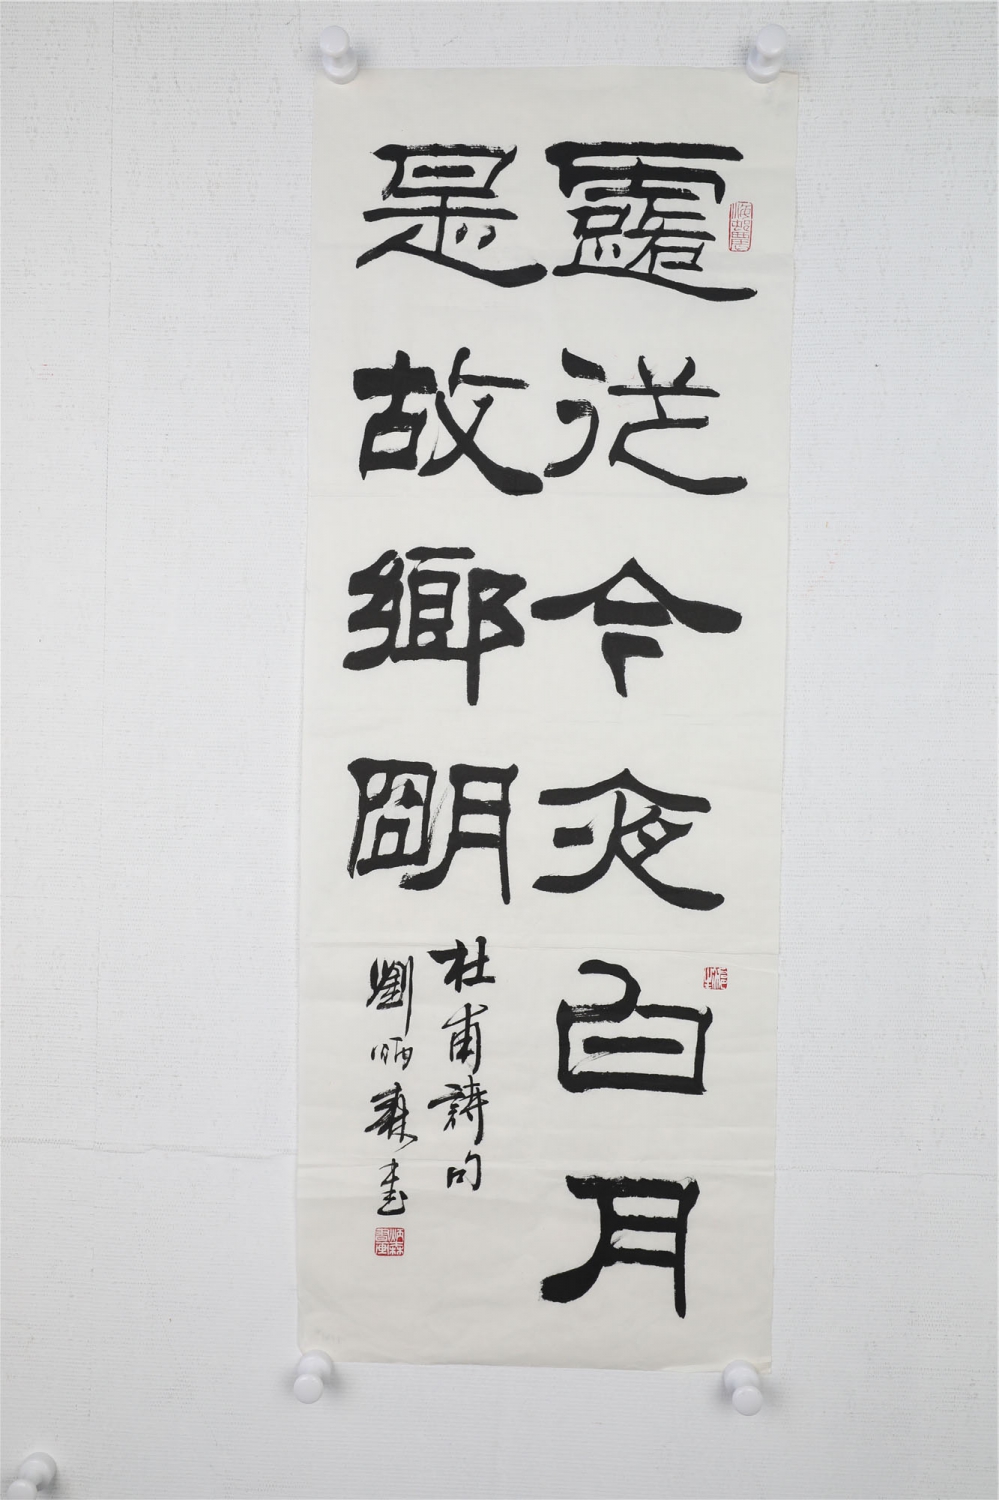 露從今夜白月
是故鄉朙
杜甫詩句
劉炳森書